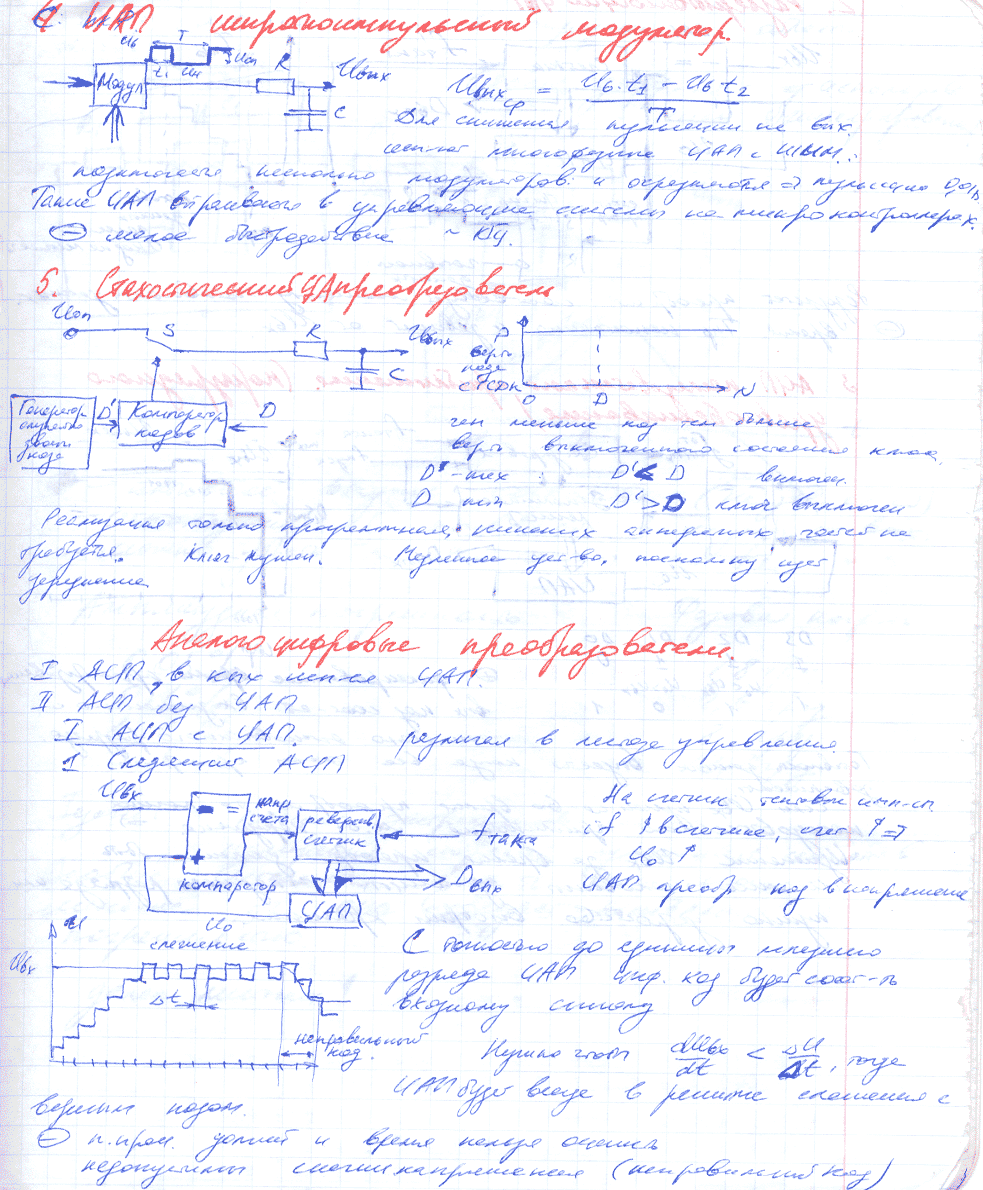 ЦАП широкоимпульсный модулятор.
Uв T Uоп
t₁ R Uвых
Модул C
Uвыхср = (Uв·t₁ − Uв t₂) / T
Для снижения пульсации на вых.
многофазные ЦАП с ШИМ:
несколько модуляторов и усредняется ⇒ пульсации
Такие ЦАП встраивают в управляющие системы на микроконтроллерах.
⊖ малое быстродействие ~ кГц.
5. Стахостический ЦАпреобразователь
Uоп S R Uвых C
P верть N
O D
Генератор кода D' Компаратор кодов D
чем меньше код тем больше
верть выключенного состояния ключа
D' -max : D' < D включен.
D min D' > D ключ выключен
Реализация только программная, никаких аппаратных частей не
требуется. Ключ нужен. Медленное уст-во, поскольку идет
усреднение
Аналого цифровые преобразователи.
I АЦП, в кых исп-ся ЦАП.
II АЦП без ЦАП
I АЦП с ЦАП. различая в методе управления.
1 Следящий АЦП
Uвх − = напр счета реверсив. счетчик fтакта
+ компаратор
ЦАП Dвых
U₀
На счетчик тактовые имп-сы.
if ↑ в счетчике, счет ↑ ⇒
U₀ ↑
ЦАП преобр код в напряжение
U
слежение
Uвх
Δt
неправильный код.
С точностью до единицы младшего
разряда ЦАП циф. код будет соот-ть
входному сигналу
Нужно чтобы dUвх/dt < ΔU/Δt, тогда
ЦАП будет всегда в режиме слежения с
верным кодом.
⊖ и время нельзя оценить
недопустимы скачки напряжения (неправильный код)